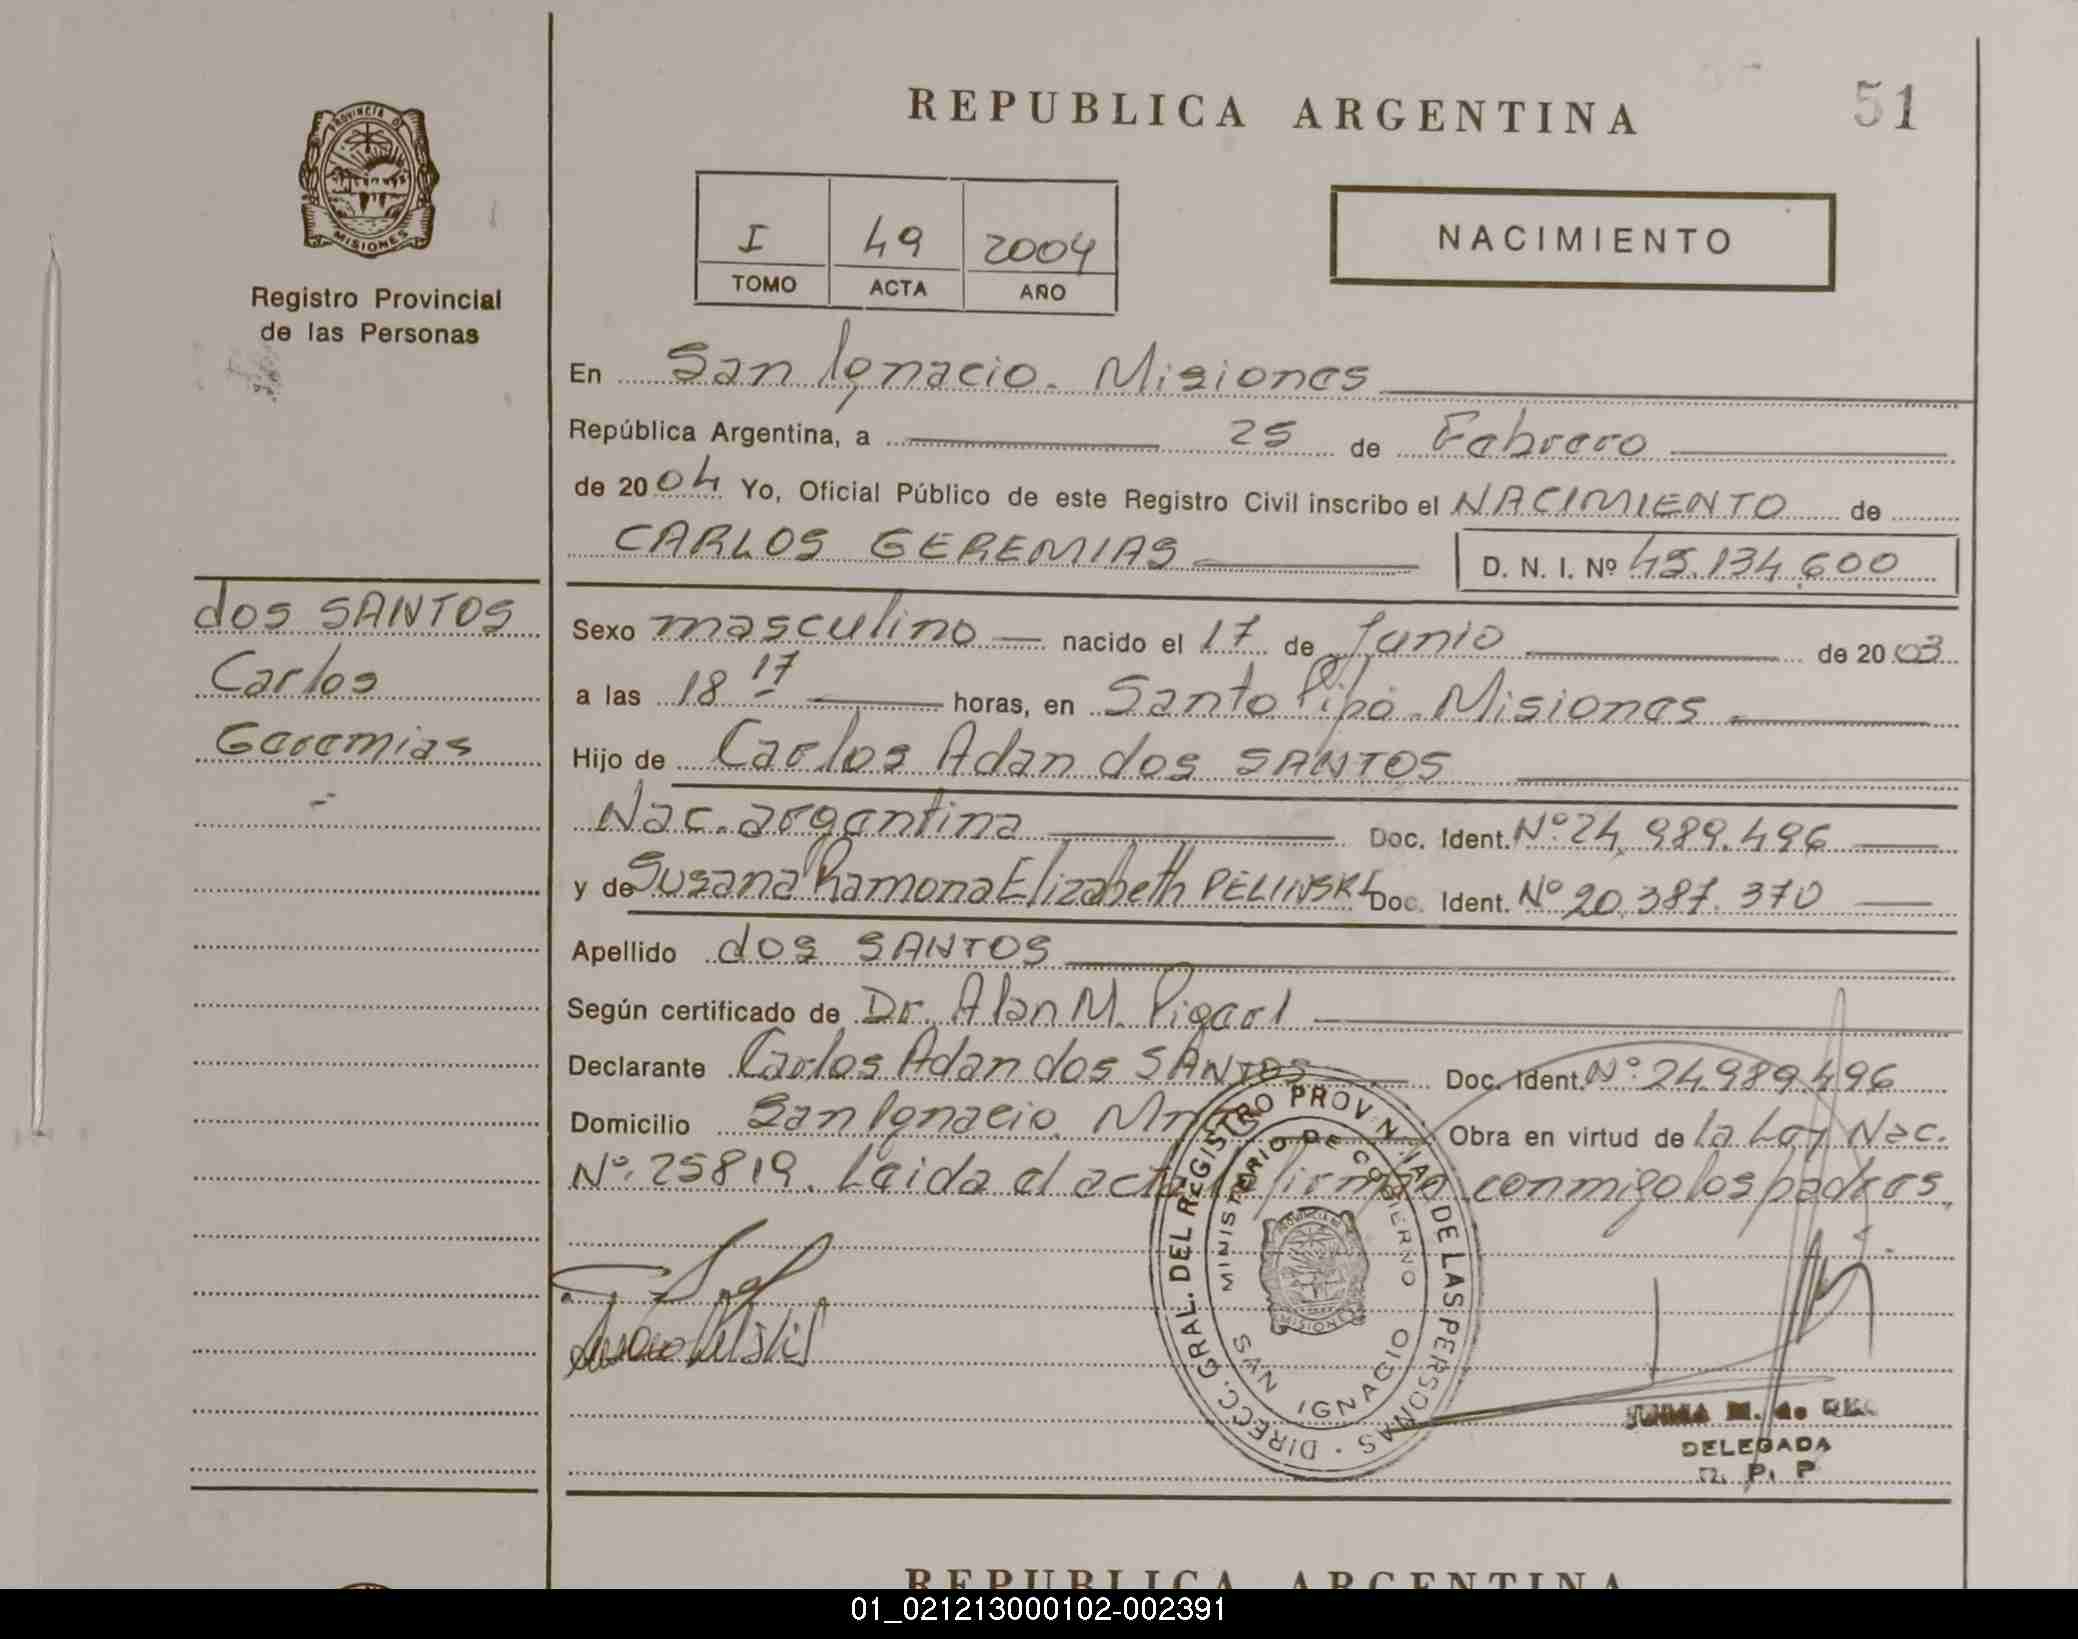 REPUBLICA ARGENTINA
51
PROVINCIA DE
MISIONES
Registro Provincial
de las Personas
I 49 2004
TOMO ACTA AÑO
NACIMIENTO
En San Ignacio. Misiones
República Argentina, a 25 de Febrero
de 2004 Yo, Oficial Público de este Registro Civil inscribo el NACIMIENTO de
CARLOS GEREMIAS D. N. I. Nº 45.134.600
dos SANTOS
Carlos
Geremias
Sexo masculino nacido el 17 de Junio de 2003
a las 18 17 horas, en Santo Pipó. Misiones
Hijo de Carlos Adan dos SANTOS
Nac. argentina Doc. Ident. Nº 24.989.496
y de Susana Ramona Elizabeth PELINSKI Doc. Ident. Nº 20.387.370
Apellido dos SANTOS
Según certificado de Dr. Alan M.
Declarante Carlos Adan dos SANTOS Doc. Ident. Nº 24989.496
Domicilio San Ignacio. Mnes Obra en virtud de la Ley Nac.
Nº 25819. Leida el acta firman conmigo los padres.
DIRECC. GRAL. DEL REGISTRO PROVINCIAL DE LAS PERSONAS
MINISTERIO DE GOBIERNO
PROVINCIA DE
MISIONES
SAN IGNACIO
DELEGADA
R. P. P
REPUBLICA ARGENTINA
01_021213000102-002391